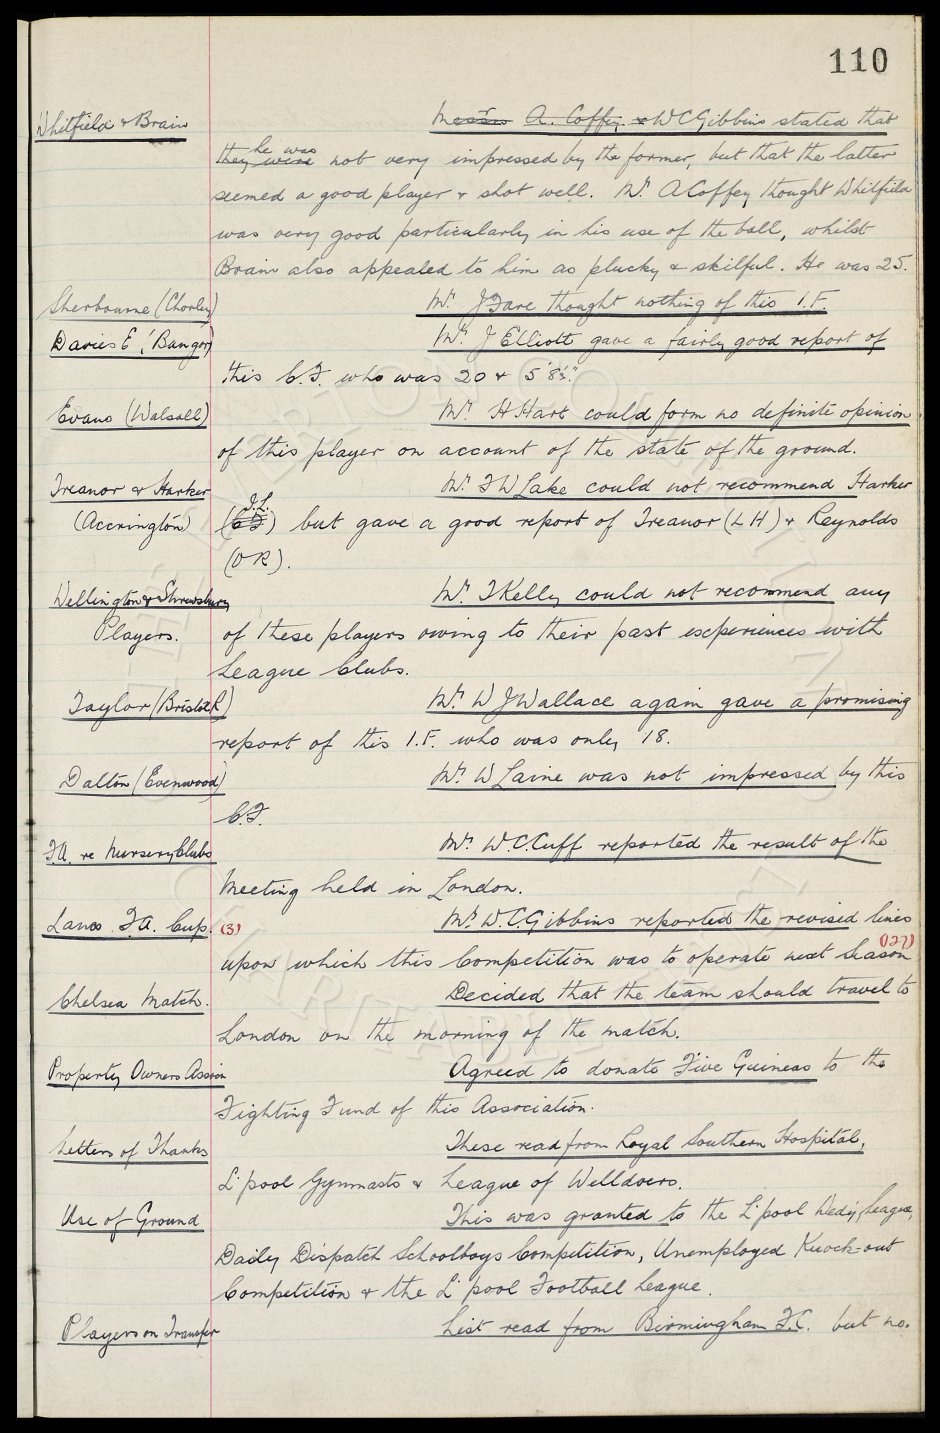 110
Whitfield & Brain Messrs A. Coffey & W C Gibbins stated that
they were he was not very impressed by the former, but that the latter
seemed a good player & shot well. Mr A Coffey thought Whitfield
was very good particularly in his use of the ball, whilst
Brain also appealed to him as plucky & skilful. He was 25.
Sherbourne (Chorley) Mr J Fare thought nothing of this I.F.
Davies E (Bangor) Mr J Elliott gave a fairly good report of
this C.F. who was 20 & 5'8½".
Evans (Walsall) Mr H Hart could form no definite opinion
of this player on account of the state of the ground.
Treanor & Harker Mr F W Lake could not recommend Harker
(Accrington) (C F I.L.) but gave a good report of Treanor (L H) & Reynolds
(O R).
Wellington & Shrewsbury Mr T Kelly could not recommend any
Players. of these players owing to their past experiences with
League Clubs.
Taylor (Bristol R) Mr W J Wallace again gave a promising
report of this I.F. who was only 18.
Dalton (Evenwood) Mr W Laine was not impressed by this
C.F.
F.A. re Nursery Clubs Mr W.C. Cuff reported the result of the
Meeting held in London.
Lancs F.A. Cup. (3) Mr W.C. Gibbins reported the revised lines
upon which this Competition was to operate next Season (122)
Chelsea Match. Decided that the team should travel to
London on the morning of the match.
Property Owners Assocn Agreed to donate Five Guineas to the
Fighting Fund of this Association.
Letters of Thanks These read from Royal Southern Hospital,
L'pool Gymnasts & League of Welldoers.
Use of Ground This was granted to the L'pool Wed'y League,
Daily Dispatch Schoolboys Competition, Unemployed Knock-out
Competition & the L'pool Football League.
Players on Transfer List read from Birmingham F.C. but no.